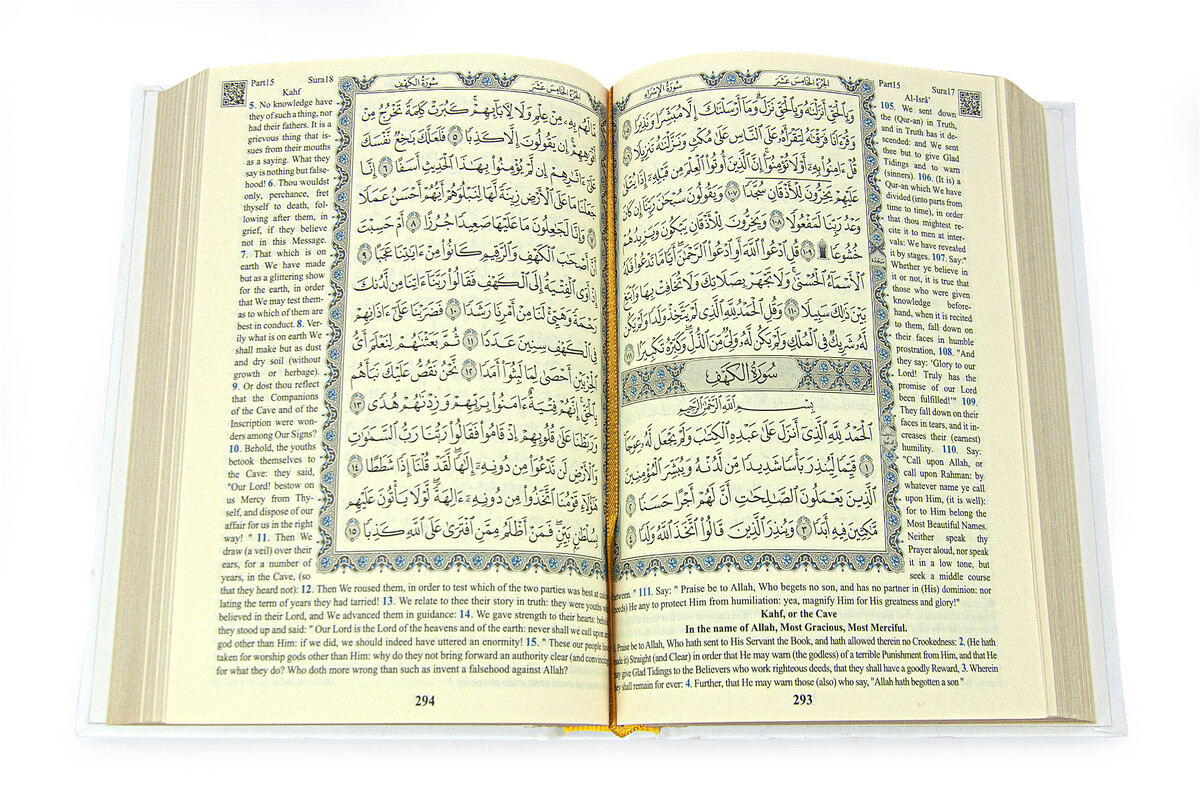 Part15
Sura17
Al-Isrâ'
الجزء الخامس عشر
سورة الإسراء
وَبِالْحَقِّ أَنزَلْنَاهُ وَبِالْحَقِّ نَزَلَ ۗ وَمَا أَرْسَلْنَاكَ إِلَّا مُبَشِّرًا وَنَذِيرًا
وَقُرْءَانًا فَرَقْنَاهُ لِتَقْرَأَهُ عَلَى النَّاسِ عَلَى مُكْثٍ وَنَزَّلْنَاهُ تَنزِيلًا
قُلْ ءَامِنُوا بِهِ أَوْ لَا تُؤْمِنُوا ۚ إِنَّ الَّذِينَ أُوتُوا الْعِلْمَ مِن قَبْلِهِ إِذَا يُتْلَى
عَلَيْهِمْ يَخِرُّونَ لِلْأَذْقَانِ سُجَّدًا ١٠٧ وَيَقُولُونَ سُبْحَانَ رَبِّنَا إِن كَانَ
وَعْدُ رَبِّنَا لَمَفْعُولًا ١٠٨ وَيَخِرُّونَ لِلْأَذْقَانِ يَبْكُونَ وَيَزِيدُهُمْ
خُشُوعًا ۩ ١٠٩ قُلِ ادْعُوا اللَّهَ أَوِ ادْعُوا الرَّحْمَٰنَ ۖ أَيًّا مَّا تَدْعُوا فَلَهُ
الْأَسْمَاءُ الْحُسْنَىٰ ۚ وَلَا تَجْهَرْ بِصَلَاتِكَ وَلَا تُخَافِتْ بِهَا وَابْتَغِ
بَيْنَ ذَٰلِكَ سَبِيلًا ١١٠ وَقُلِ الْحَمْدُ لِلَّهِ الَّذِي لَمْ يَتَّخِذْ وَلَدًا وَلَمْ يَكُن
لَّهُ شَرِيكٌ فِي الْمُلْكِ وَلَمْ يَكُن لَّهُ وَلِيٌّ مِّنَ الذُّلِّ ۖ وَكَبِّرْهُ تَكْبِيرًا ١١١
سُورَةُ الْكَهْفِ
بِسْمِ اللَّهِ الرَّحْمَٰنِ الرَّحِيمِ
الْحَمْدُ لِلَّهِ الَّذِي أَنزَلَ عَلَىٰ عَبْدِهِ الْكِتَابَ وَلَمْ يَجْعَل لَّهُ عِوَجَا
١ قَيِّمًا لِّيُنذِرَ بَأْسًا شَدِيدًا مِّن لَّدُنْهُ وَيُبَشِّرَ الْمُؤْمِنِينَ
الَّذِينَ يَعْمَلُونَ الصَّالِحَاتِ أَنَّ لَهُمْ أَجْرًا حَسَنًا ٢
مَّاكِثِينَ فِيهِ أَبَدًا ٣ وَيُنذِرَ الَّذِينَ قَالُوا اتَّخَذَ اللَّهُ وَلَدًا ٤
105. We sent down
the (Qur-an) in Truth,
and in Truth has it de-
scended: and We sent
thee but to give Glad
Tidings and to warn
(sinners). 106. (It is) a
Qur-an which We have
divided (into parts from
time to time), in order
that thou mightest re-
cite it to men at inter-
vals: We have revealed
it by stages. 107. Say:"
Whether ye believe in
it or not, it is true that
those who were given
knowledge before-
hand, when it is recited
to them, fall down on
their faces in humble
prostration, 108. "And
they say: 'Glory to our
Lord! Truly has the
promise of our Lord
been fulfilled!'" 109.
They fall down on their
faces in tears, and it in-
creases their (earnest)
humility. 110. Say:
"Call upon Allah, or
call upon Rahman: by
whatever name ye call
upon Him, (it is well):
for to Him belong the
Most Beautiful Names.
Neither speak thy
Prayer aloud, nor speak
it in a low tone, but
seek a middle course
between." 111. Say: " Praise be to Allah, Who begets no son, and has no partner in (His) dominion: nor
(needs) He any to protect Him from humiliation: yea, magnify Him for His greatness and glory!"
Kahf, or the Cave
In the name of Allah, Most Gracious, Most Merciful.
1. Praise be to Allah, Who hath sent to His Servant the Book, and hath allowed therein no Crookedness: 2. (He hath
made it) Straight (and Clear) in order that He may warn (the godless) of a terrible Punishment from Him, and that He
may give Glad Tidings to the Believers who work righteous deeds, that they shall have a goodly Reward, 3. Wherein
they shall remain for ever: 4. Further, that He may warn those (also) who say, "Allah hath begotten a son "
293
Part15
Sura18
Kahf
الجزء الخامس عشر
سورة الكهف
مَّا لَهُم بِهِ مِنْ عِلْمٍ وَلَا لِآبَائِهِمْ ۚ كَبُرَتْ كَلِمَةً تَخْرُجُ مِنْ
أَفْوَاهِهِمْ ۚ إِن يَقُولُونَ إِلَّا كَذِبًا ٥ فَلَعَلَّكَ بَاخِعٌ نَّفْسَكَ
عَلَىٰ ءَاثَارِهِمْ إِن لَّمْ يُؤْمِنُوا بِهَٰذَا الْحَدِيثِ أَسَفًا ٦ إِنَّا
جَعَلْنَا مَا عَلَى الْأَرْضِ زِينَةً لَّهَا لِنَبْلُوَهُمْ أَيُّهُمْ أَحْسَنُ عَمَلًا
٧ وَإِنَّا لَجَاعِلُونَ مَا عَلَيْهَا صَعِيدًا جُرُزًا ٨ أَمْ حَسِبْتَ
أَنَّ أَصْحَابَ الْكَهْفِ وَالرَّقِيمِ كَانُوا مِنْ ءَايَاتِنَا عَجَبًا ٩
إِذْ أَوَى الْفِتْيَةُ إِلَى الْكَهْفِ فَقَالُوا رَبَّنَا ءَاتِنَا مِن لَّدُنكَ
رَحْمَةً وَهَيِّئْ لَنَا مِنْ أَمْرِنَا رَشَدًا ١٠ فَضَرَبْنَا عَلَىٰ ءَاذَانِهِمْ
فِي الْكَهْفِ سِنِينَ عَدَدًا ١١ ثُمَّ بَعَثْنَاهُمْ لِنَعْلَمَ أَيُّ
الْحِزْبَيْنِ أَحْصَىٰ لِمَا لَبِثُوا أَمَدًا ١٢ نَّحْنُ نَقُصُّ عَلَيْكَ نَبَأَهُم
بِالْحَقِّ ۚ إِنَّهُمْ فِتْيَةٌ ءَامَنُوا بِرَبِّهِمْ وَزِدْنَاهُمْ هُدًى ١٣
وَرَبَطْنَا عَلَىٰ قُلُوبِهِمْ إِذْ قَامُوا فَقَالُوا رَبُّنَا رَبُّ السَّمَاوَاتِ
وَالْأَرْضِ لَن نَّدْعُوَا مِن دُونِهِ إِلَٰهًا ۖ لَّقَدْ قُلْنَا إِذًا شَطَطًا ١٤
هَٰؤُلَاءِ قَوْمُنَا اتَّخَذُوا مِن دُونِهِ ءَالِهَةً ۖ لَّوْلَا يَأْتُونَ عَلَيْهِم
بِسُلْطَانٍ بَيِّنٍ ۖ فَمَنْ أَظْلَمُ مِمَّنِ افْتَرَىٰ عَلَى اللَّهِ كَذِبًا ١٥
5. No knowledge have
they of such a thing, nor
had their fathers. It is a
grievous thing that is-
sues from their mouths
as a saying. What they
say is nothing but false-
hood! 6. Thou wouldst
only, perchance, fret
thyself to death, fol-
lowing after them, in
grief, if they believe
not in this Message.
7. That which is on
earth We have made
but as a glittering show
for the earth, in order
that We may test them-
as to which of them are
best in conduct. 8. Ver-
ily what is on earth We
shall make but as dust
and dry soil (without
growth or herbage).
9. Or dost thou reflect
that the Companions
of the Cave and of the
Inscription were won-
ders among Our Signs?
10. Behold, the youths
betook themselves to
the Cave: they said,
"Our Lord! bestow on
us Mercy from Thy-
self, and dispose of our
affair for us in the right
way! " 11. Then We
draw (a veil) over their
ears, for a number of
years, in the Cave, (so
that they heard not): 12. Then We roused them, in order to test which of the two parties was best at calcu-
lating the term of years they had tarried! 13. We relate to thee their story in truth: they were youths who
believed in their Lord, and We advanced them in guidance: 14. We gave strength to their hearts: behold,
they stood up and said: " Our Lord is the Lord of the heavens and of the earth: never shall we call upon any
god other than Him: if we did, we should indeed have uttered an enormity! 15. " These our people have
taken for worship gods other than Him: why do they not bring forward an authority clear (and convincing)
for what they do? Who doth more wrong than such as invent a falsehood against Allah?
294